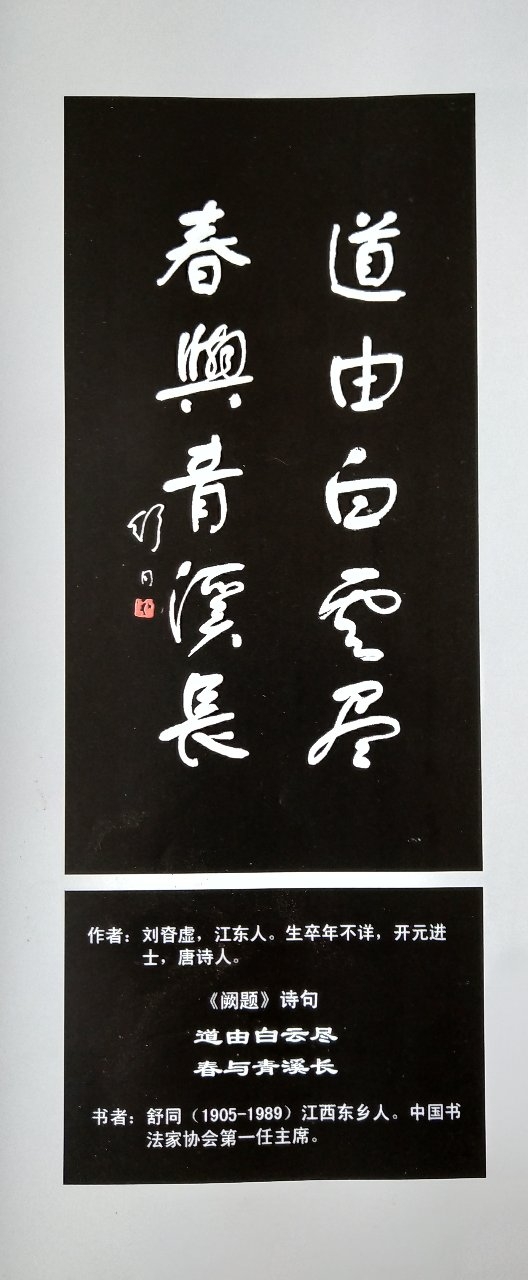 道由白雲尽
春與青溪長
舒同
作者：刘眘虚，江东人。生卒年不详，开元进
士，唐诗人。
《阙题》诗句
道由白云尽
春与青溪长
书者：舒同（1905-1989）江西东乡人。中国书
法家协会第一任主席。